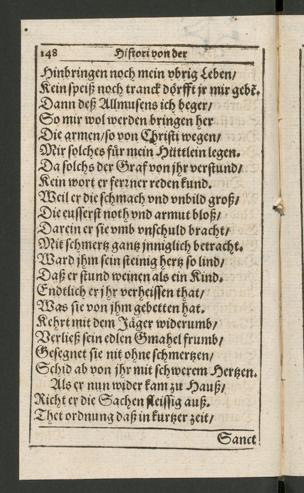 148 Histori von der
Hinbringen noch mein vbrig Leben/
Kein speiß noch tranck dörfft jr mir gebē.
Dann deß Allmusens ich beger/
So mir wol werden bringen her
Die armen/so von Christi wegen/
Mir solches für mein Hüttlein legen.
Da solchs der Graf von jhr verstund/
Kein wort er ferꝛner reden kund.
Weil er die schmach vnd vnbild groß/
Die eusserst noth vnd armut bloß/
Darein er sie vmb vnschuld bracht/
Mit schmertz gantz jnniglich betracht.
Ward jhm sein steinig hertz so lind/
Daß er stund weinen als ein Kind.
Endtlich er jhr verheissen that/
Was sie von jhm gebetten hat.
Kehrt mit dem Jäger widerumb/
Verließ sein edlen Gmahel frumb/
Gesegnet sie nit ohne schmertzen/
Schid ab von jhr mit schwerem Hertzen.
Als er nun wider kam zu Hauß/
Richt er die Sachen fleissig auß.
Thet ordnung daß in kurtzer zeit/
Sanct